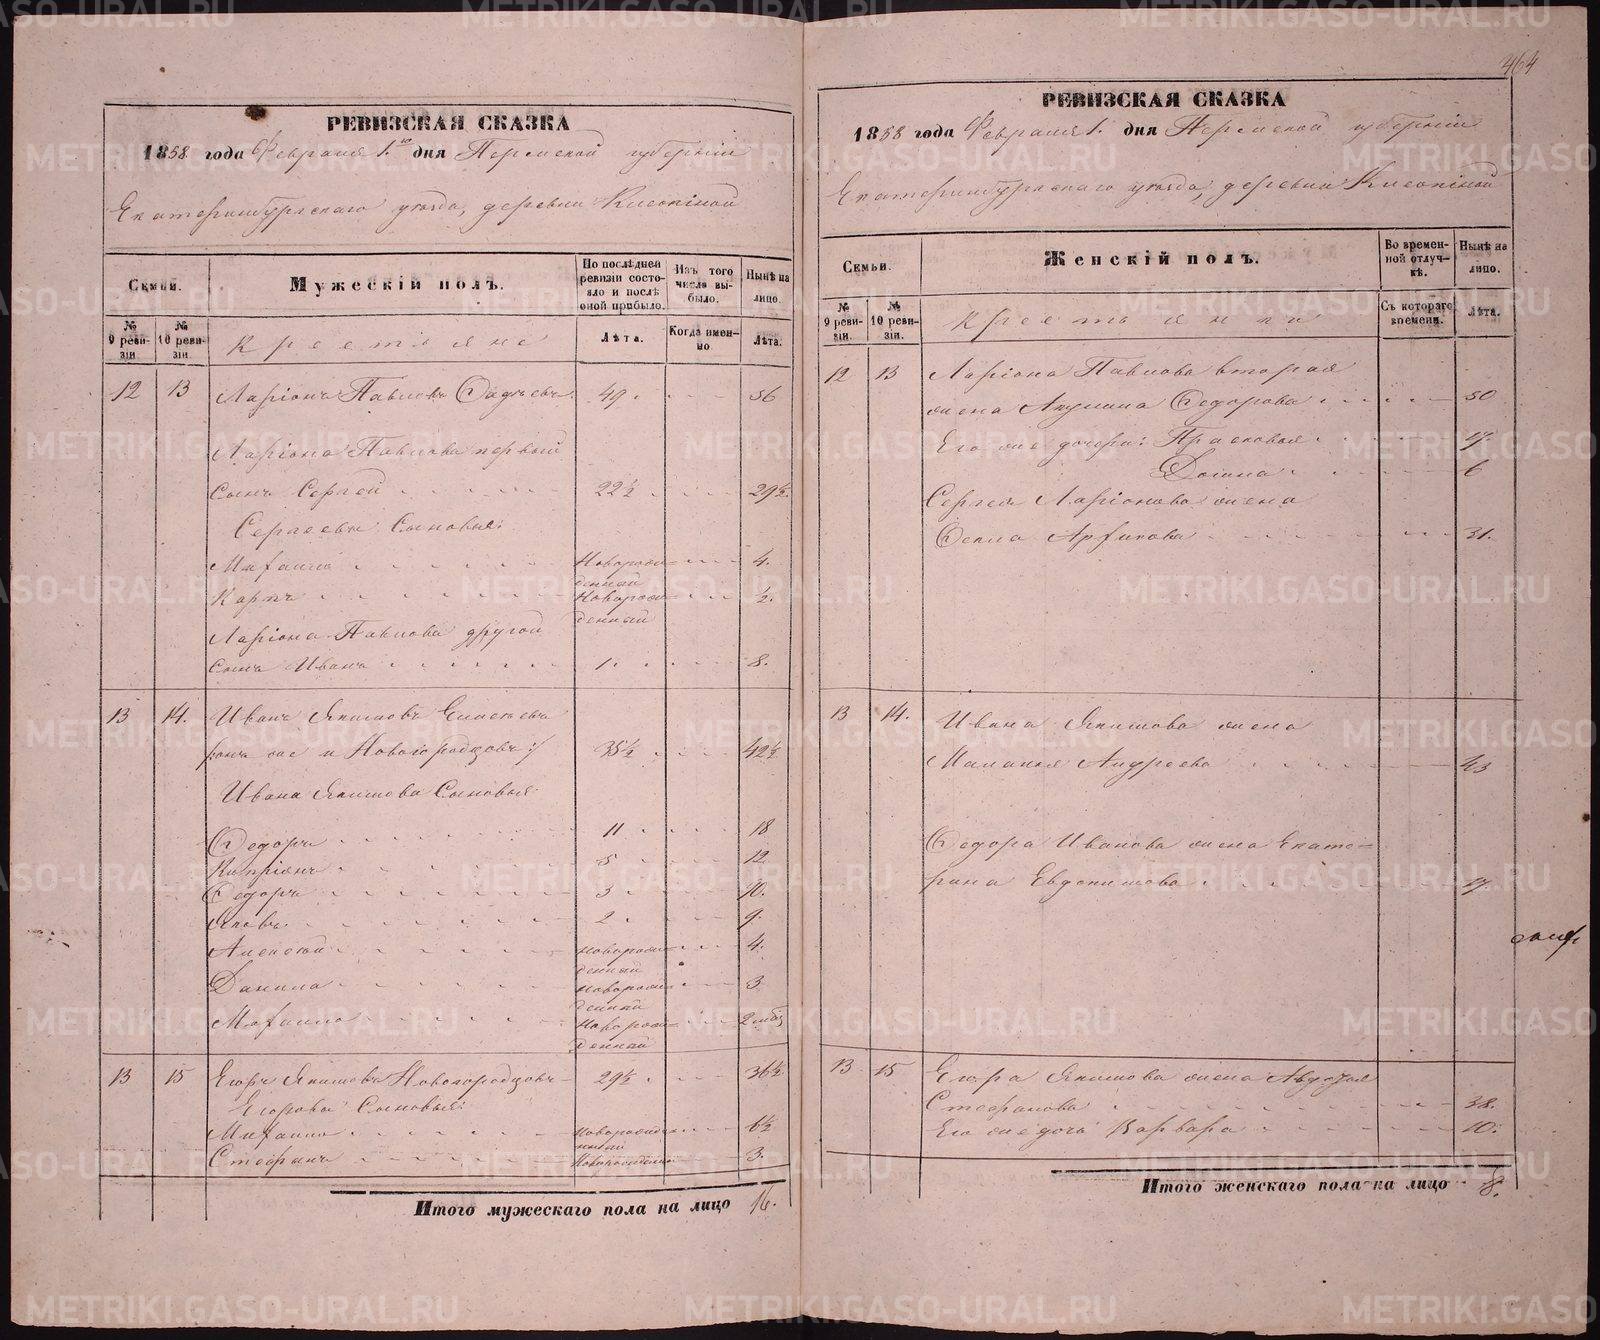 464
РЕВИЗСКАЯ СКАЗКА
1858 года Февраля 1.го дня Пермской губерніи
Екатеринбургскаго уѣзда, деревни Клеопиной
Семьи.
Мужескій полъ.
По послѣдней ревизіи состояло и послѣ оной прибыло.
Изъ того числа выбыло.
Нынѣ на лицо.
№ 9 ревизіи.
№ 10 ревизіи.
Крестьяне
Лѣта.
Когда именно.
Лѣта.
12 13 Ларіонъ Павловъ 49 56
Ларіона Павлова первый
сынъ Сергей 22½ 29½
Сергеевы Сыновья:
Михаило Новорожденный 4.
Карпъ Новорожденный ½.
Ларіона Павлова другой
сынъ Иванъ 1. 8.
13 14. Иванъ Якимовъ
онъ же и Новогородцовъ 35½ 42½
Ивана Якимова Сыновья:
Федоръ 11 18
Кипріянъ 5 12
Федоръ 3 10.
Яковъ 2 9.
Алексѣй новорожденный 4.
Данила новорожденный 3
Михаило Новорожденный
13 15 Егоръ Якимовъ Новогородцовъ 29½ 36½
Егорова Сыновья:
Михаило новорожденный 6½
Стефанъ Новорожденный 3.
Итого мужескаго пола на лицо 16.
РЕВИЗСКАЯ СКАЗКА
1858 года Февраля 1. дня Пермской губерніи
Екатеринбургскаго уѣзда, деревни Клеопиной
Семьи.
Женскій полъ.
Во временной отлучкѣ.
Нынѣ на лицо.
№ 9 ревизіи.
№ 10 ревизіи.
Крестьянки
Съ котораго времени.
Лѣта.
12 13 Ларіона Павлова вторая
жена Акулина Федорова 50
Его же дочери: Прасковья 17.
Домна 6
Сергея Ларіонова жена
Фекла 31.
13 14. Ивана Якимова жена
Маланья Андреева 43
Федора Иванова жена Екате-
рина Евдокимова 17.
13 15 Егора Якимова жена Авдотья
Стефанова 38.
Его же дочь Варвара 10.
Итого женскаго пола на лицо 8.
METRIKI.GASO-URAL.RU